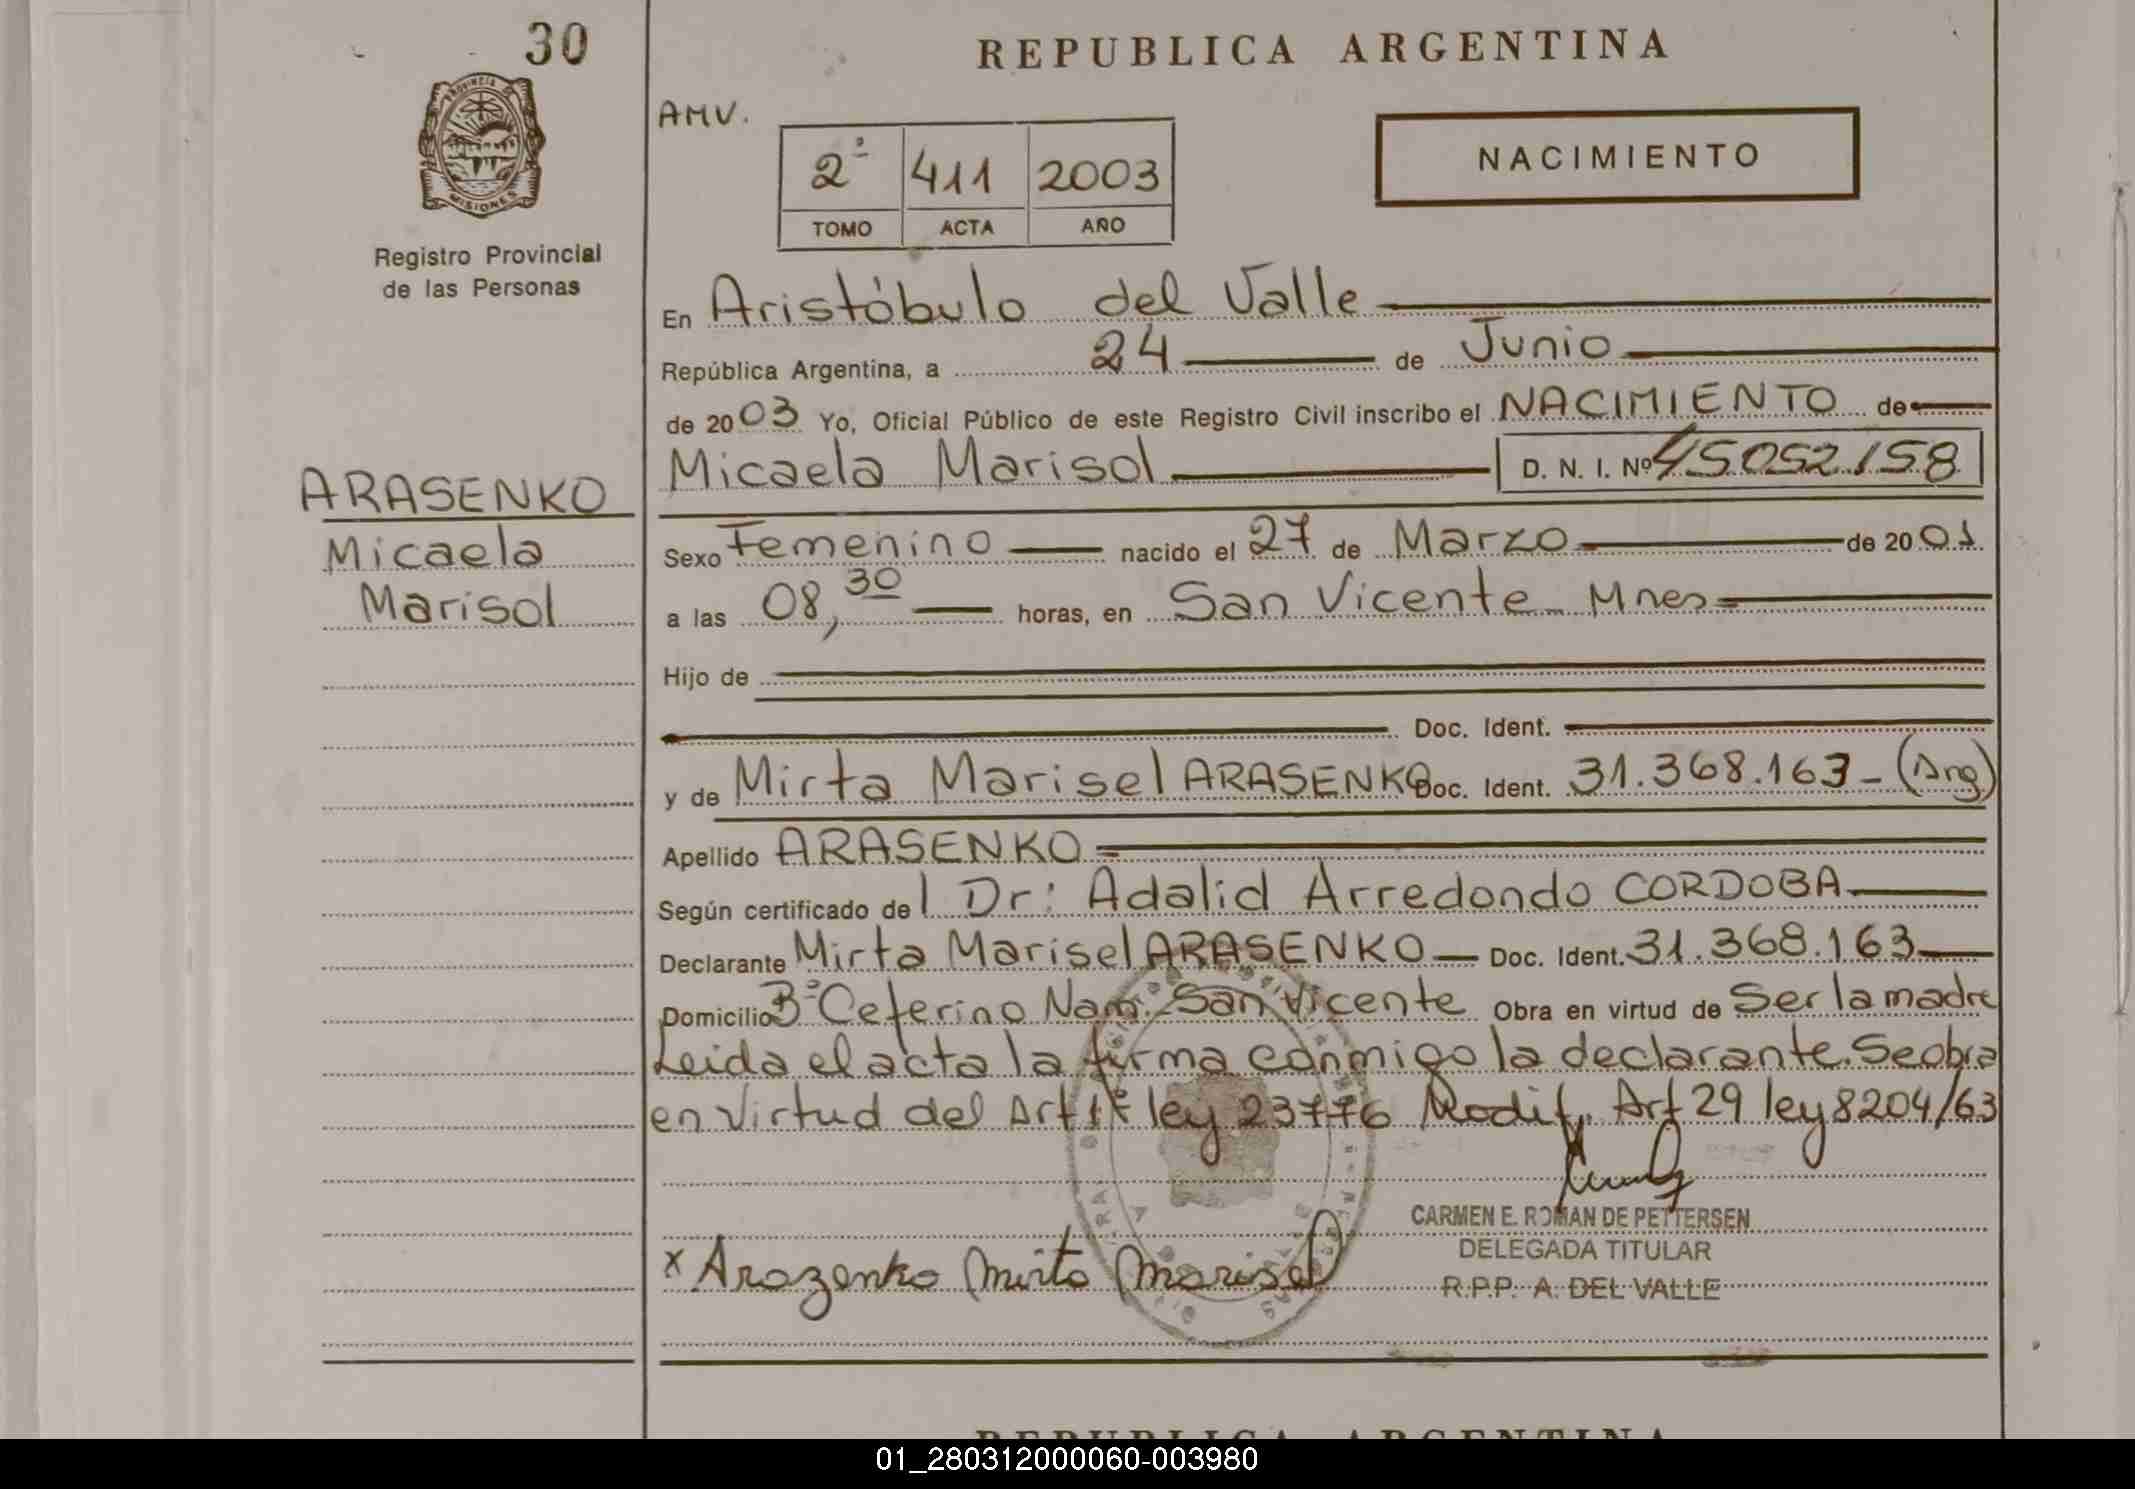 30
REPUBLICA ARGENTINA
PROVINCIA DE
MISIONES
Registro Provincial
de las Personas
AMV.
2º 411 2003
TOMO ACTA AÑO
NACIMIENTO
En Aristóbulo del Valle
República Argentina, a 24 de Junio
de 2003 Yo, Oficial Público de este Registro Civil inscribo el NACIMIENTO de
Micaela Marisol D. N. I. Nº 45052158
ARASENKO
Micaela
Marisol
Sexo Femenino nacido el 27 de Marzo de 2001
a las 08,30 horas, en San Vicente Mnes
Hijo de
Doc. Ident.
y de Mirta Marisel ARASENKO Doc. Ident. 31.368.163 - (Arg)
Apellido ARASENKO
Según certificado del Dr: Adalid Arredondo CORDOBA
Declarante Mirta Marisel ARASENKO Doc. Ident. 31.368.163
Domicilio Bº Ceferino Nam. San Vicente Obra en virtud de Ser la madre
Leida el acta la firma conmigo la declarante. Se obra
en virtud del Art 1º ley 23776 Modif. Art 29 ley 8204/63
CARMEN E. ROMAN DE PETTERSEN
DELEGADA TITULAR
R.P.P. A. DEL VALLE
x Arazenko Mirta Marisel
REPUBLICA ARGENTINA
01_280312000060-003980